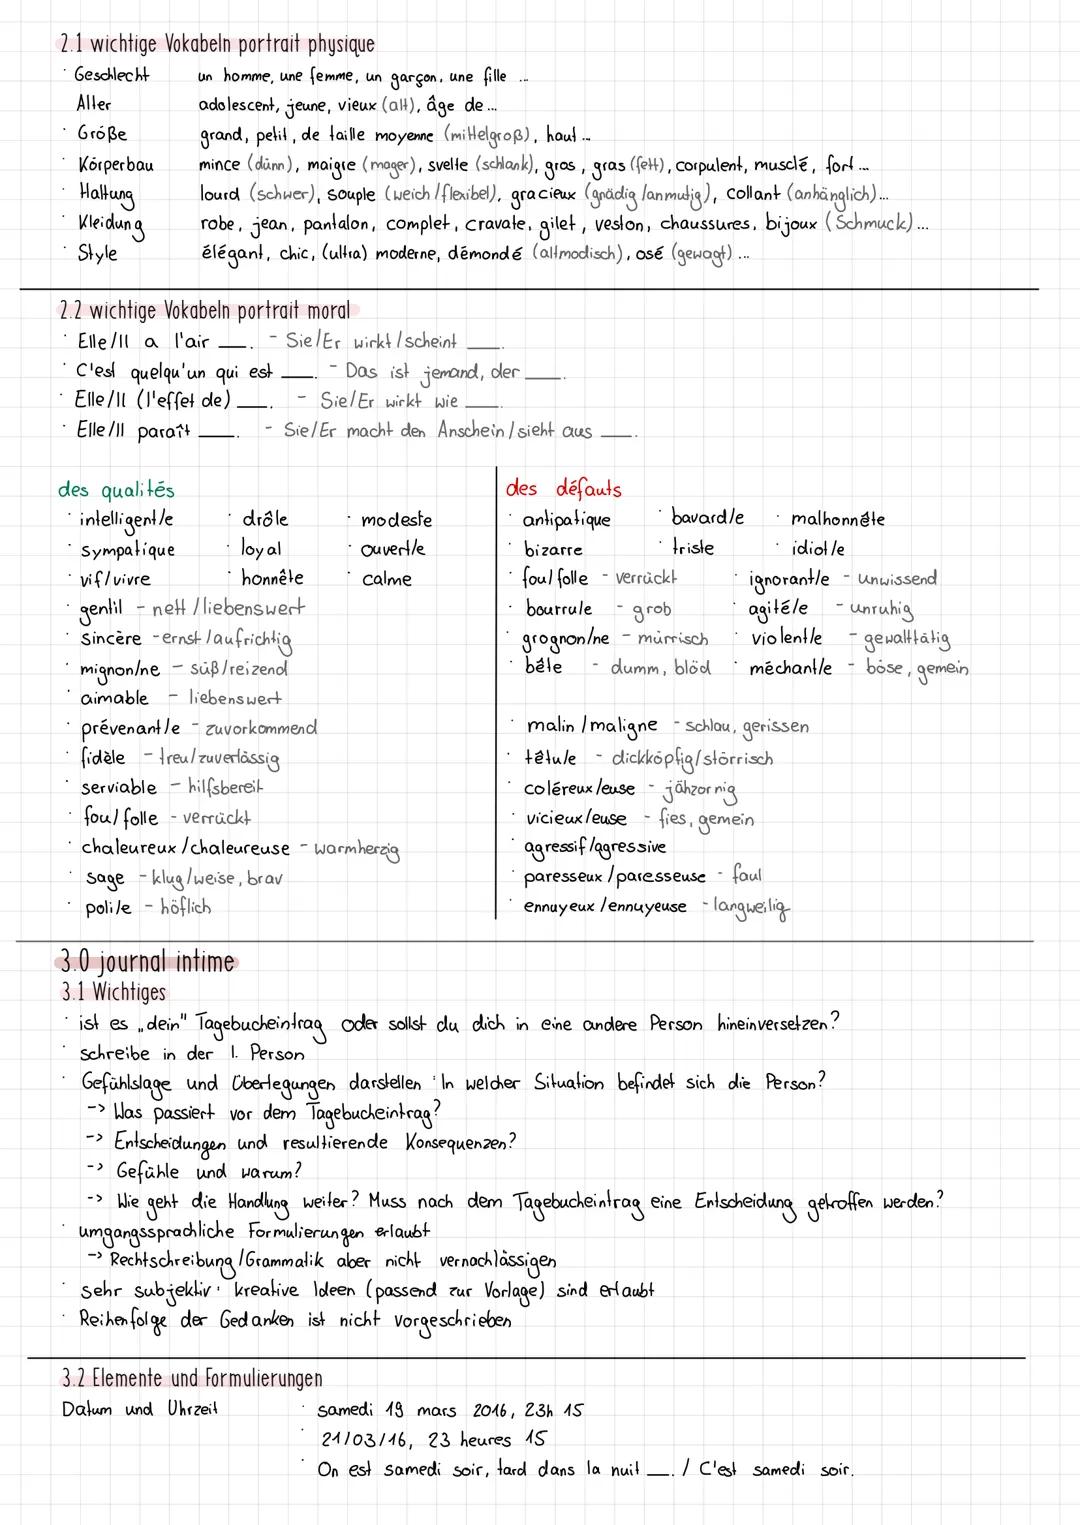 2.1 wichtige Vokabeln portrait physique
· Geschlecht un homme, une femme, un garçon, une fille ...
Alter adolescent, jeune, vieux (alt), âge de ...
· Größe grand, petit, de taille moyenne (mittelgroß), haut ...
· Körperbau mince (dünn), maigre (mager), svelte (schlank), gros, gras (fett), corpulent, musclé, fort ...
· Haltung lourd (schwer), souple (weich/flexibel), gracieux (gnädig/anmutig), collant (anhänglich)...
· Kleidung robe, jean, pantalon, complet, cravate, gilet, veston, chaussures, bijoux (Schmuck) ...
· Style élégant, chic, (ultra) moderne, démondé (altmodisch), osé (gewagt) ...
2.2 wichtige Vokabeln portrait moral
· Elle/Il a l'air ___. - Sie/Er wirkt/scheint ___.
· C'est quelqu'un qui est ___. - Das ist jemand, der ___.
· Elle/Il (l'effet de) ___. - Sie/Er wirkt wie ___.
· Elle/Il paraît ___. - Sie/Er macht den Anschein/sieht aus ___.
des qualités
· intelligent/e · drôle · modeste
· sympatique · loyal · ouvert/e
· vif/vivre · honnête · calme
· gentil - nett/liebenswert
· sincère - ernst/aufrichtig
· mignon/ne - süß/reizend
· aimable - liebenswert
· prévenant/e - zuvorkommend
· fidèle - treu/zuverlässig
· serviable - hilfsbereit
· fou/folle - verrückt
· chaleureux/chaleureuse - warmherzig
· sage - klug/weise, brav
· poli/e - höflich
des défauts
· antipatique · bavard/e · malhonnête
· bizarre · triste · idiot/e
· fou/folle - verrückt · ignorant/e - unwissend
· bourrule - grob · agité/e - unruhig
· grognon/ne - mürrisch · violent/e - gewalttätig
· bête - dumm, blöd · méchant/e - böse, gemein
· malin/maligne - schlau, gerissen
· têtu/e - dickköpfig/störrisch
· coléreux/euse - jähzornig
· vicieux/euse - fies, gemein
· agressif/aggressive
· paresseux/paresseuse - faul
· ennuyeux/ennuyeuse - langweilig
3.0 journal intime
3.1 Wichtiges
· ist es „dein" Tagebucheintrag oder sollst du dich in eine andere Person hineinversetzen?
· schreibe in der 1. Person
· Gefühlslage und Überlegungen darstellen · In welcher Situation befindet sich die Person?
-> Was passiert vor dem Tagebucheintrag?
-> Entscheidungen und resultierende Konsequenzen?
-> Gefühle und warum?
-> Wie geht die Handlung weiter? Muss nach dem Tagebucheintrag eine Entscheidung getroffen werden?
· umgangssprachliche Formulierungen erlaubt
-> Rechtschreibung/Grammatik aber nicht vernachlässigen
· sehr subjektiv · kreative Ideen (passend zur Vorlage) sind erlaubt
· Reihenfolge der Gedanken ist nicht vorgeschrieben
3.2 Elemente und Formulierungen
Datum und Uhrzeit · samedi 19 mars 2016, 23h 15
· 21/03/16, 23 heures 15
· On est samedi soir, tard dans la nuit ___. / C'est samedi soir.